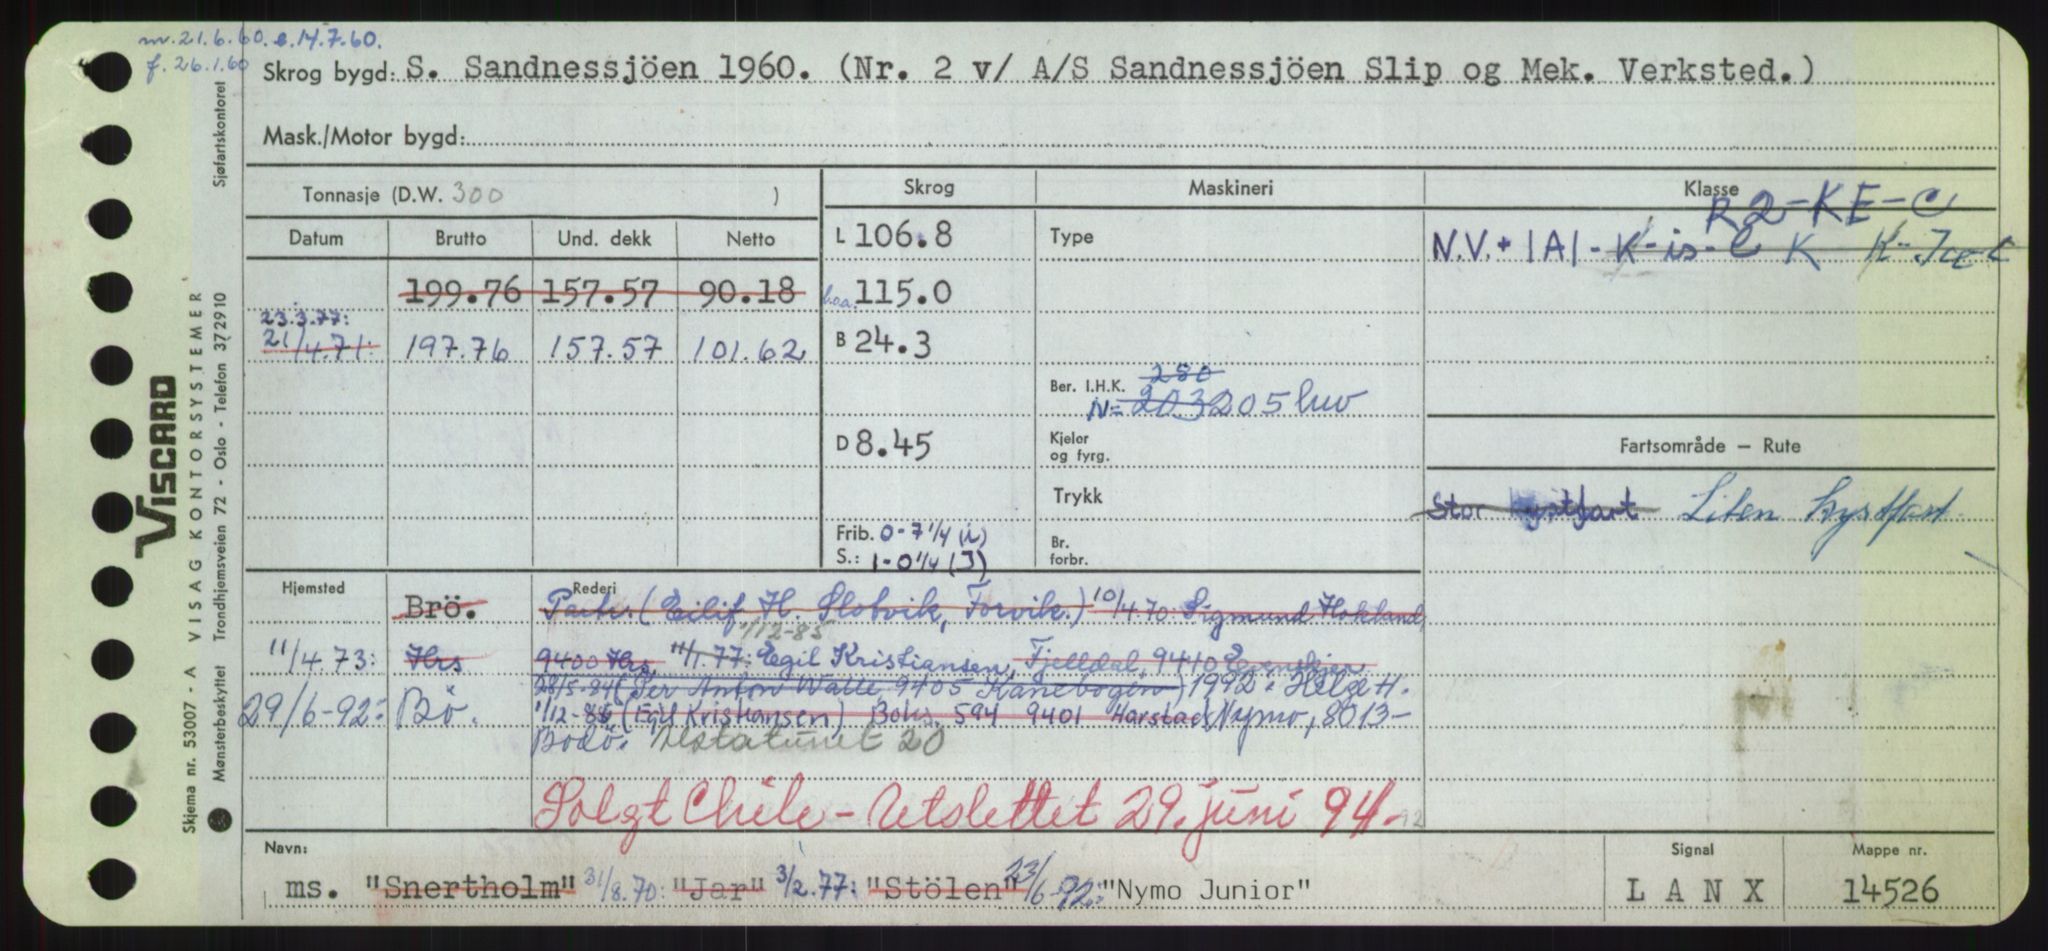 m. 21.6.60. e. 14.7.60.
f. 26.1.60
Skrog bygd: S. Sandnessjöen 1960. (Nr. 2 v/ A/S Sandnessjöen Slip og Mek. Verksted.)
Mask./Motor bygd:
Tonnasje (D.W. 300 )
Skrog
Maskineri
Klasse
R2-KE-C
Datum
Brutto
Und. dekk
Netto
L 106.8
Type
N.V. + 1A1 - K-is-C K K-Ice C
199.76 157.57 90.18
l.o.a. 115.0
23.3.77:
21/4.71: 197.76 157.57 101.62
B 24.3
Ber. I.H.K. 280
N= 203 205 hw
D 8.45
Kjeler
og fyrg.
Fartsområde — Rute
Trykk
Stor kystfart Liten kystfart
Frib. 0-7 1/4 (i)
S.: 1-0 1/4 (J)
Br.
forbr.
Hjemsted
Rederi
Brö. Partr. (Eilif H. Slotvik, Forvik.) 10/4.70: Sigmund Hokland,
1/12-85
11/4.73: Hrs 9400 Hrs 11/1.77: Egil Kristiansen, Fjelldal, 9410 Evenskjer
28/5-84 (Per Anton Walle, 9405 Kanebogen) 1992: Helge H.
29/6-92: Bö. 1/12-85 (Egil Kristiansen) Boks 594 9401 Harstad Nymo, 8013-
Bodö. Alstatunet 20
Solgt Chile - Utslettet 29. juni 94-
92
Navn:
Signal
Mappe nr.
ms. "Snertholm" 31/8.70: "Jar" 3/2.77: "Stölen" 23/6-92: "Nymo Junior"
LANX
14526
VISCARD
Skjema nr. 53007 - A VISAG KONTORSYSTEMER
Mønsterbeskyttet Trondhjemsveien 72 - Oslo - Telefon 372910 Sjøfartskontoret